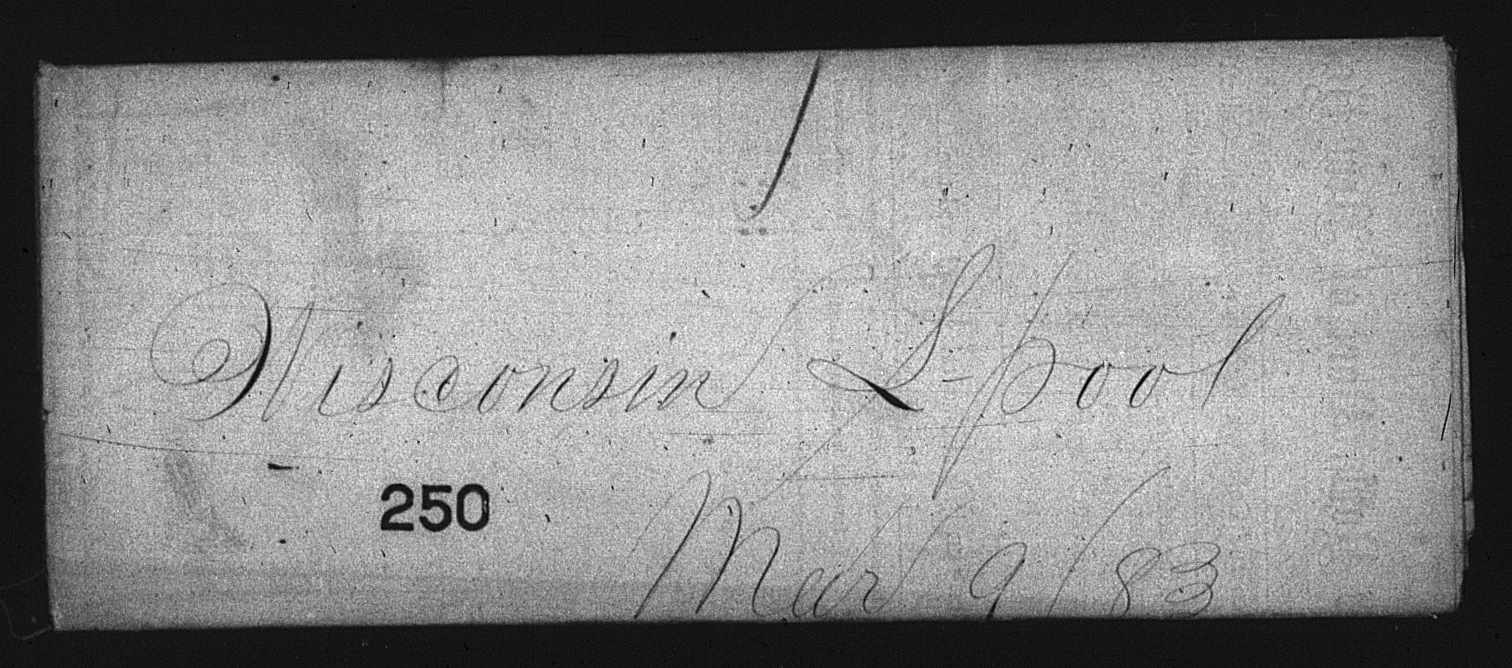 Wisconsin L-pool
250
Mar 9/83